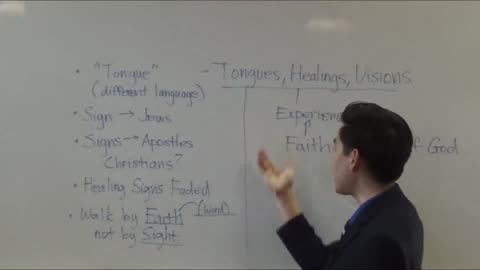 • "Tongue"
(different language)
• Sign → Jews
• Signs → Apostles
Christians?
• Healing Signs Faded
• Walk by Faith (Word)
not by Sight
- Tongues, Healings, Visions
Experience
Faith
of God